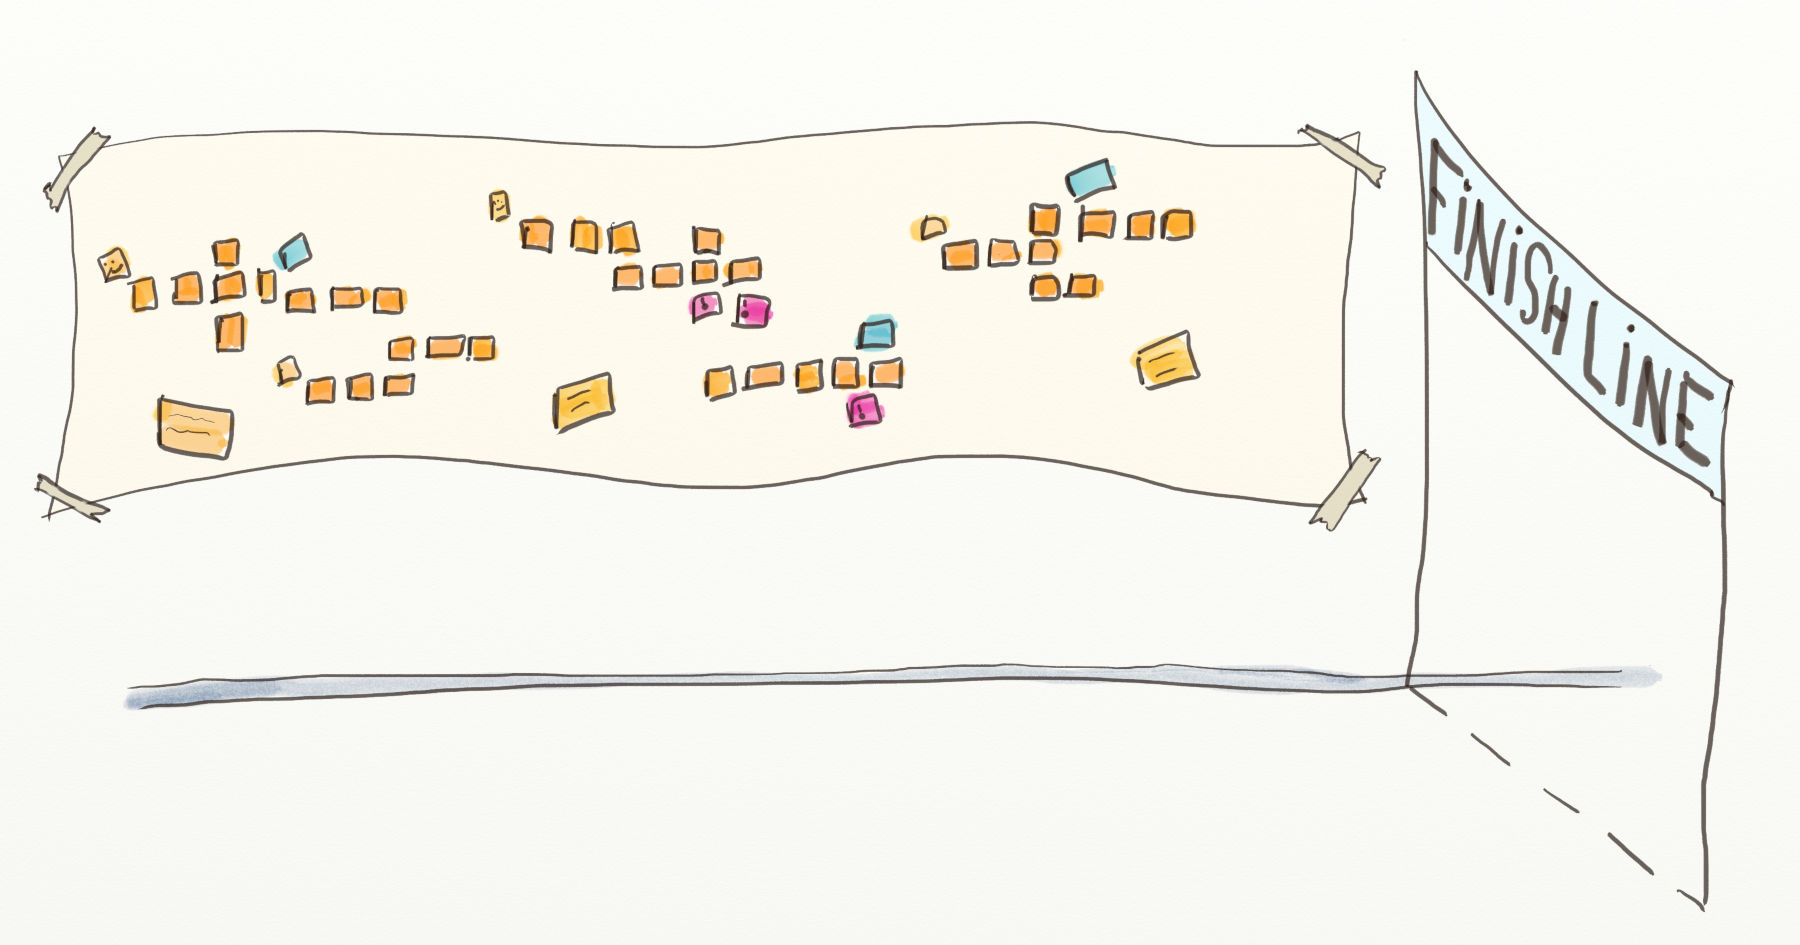 FiNiSH LiNE
!
!
!